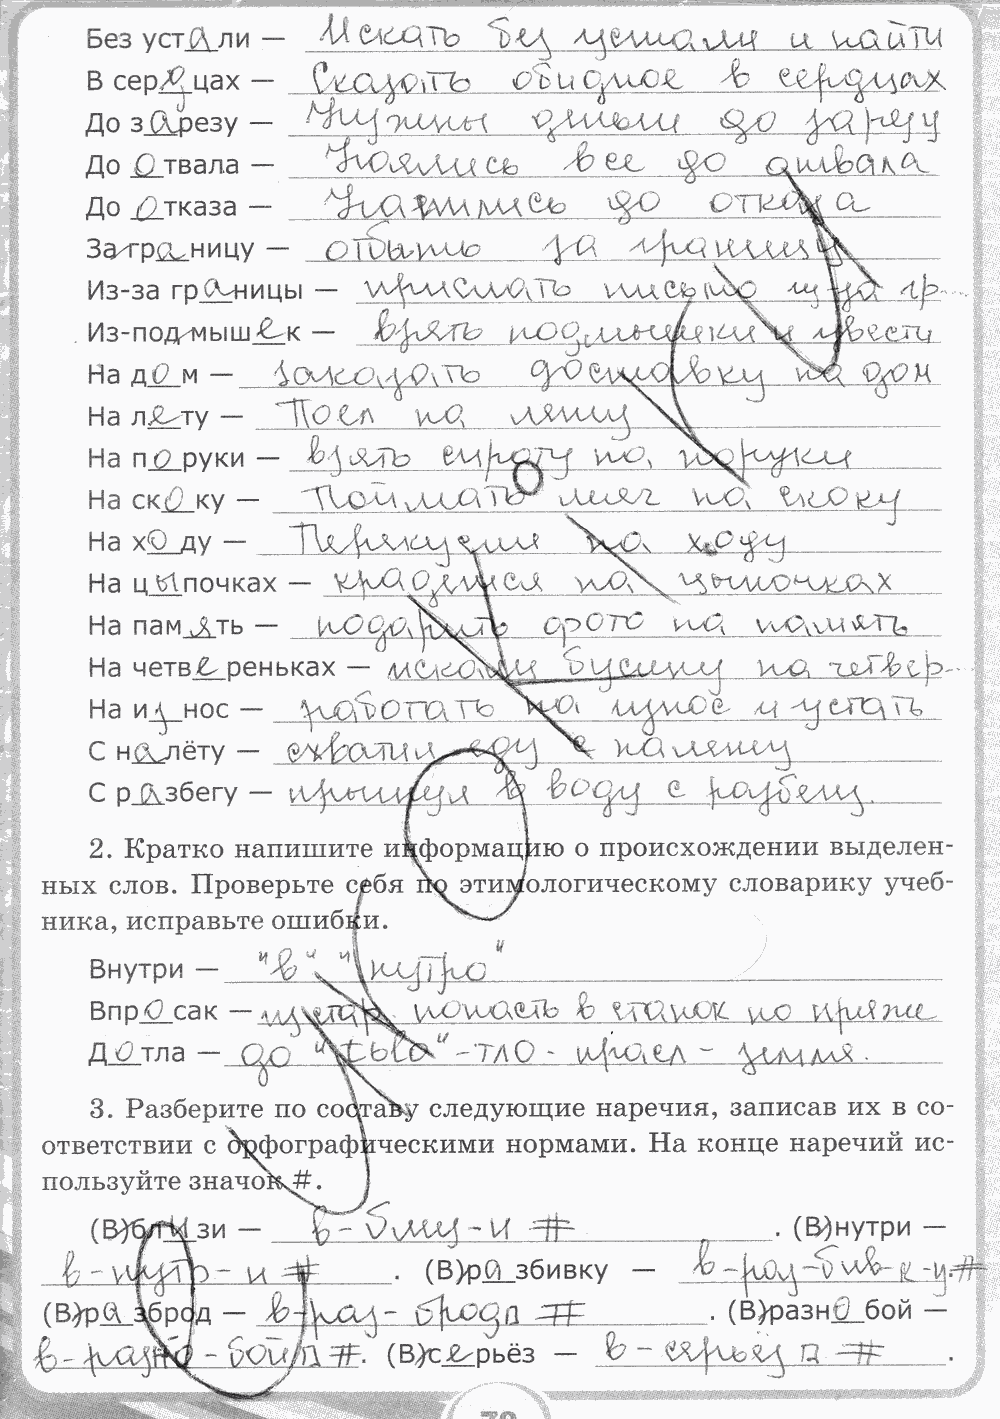 Без устали — Искать без устали и найти
В сердцах — Сказать обидное в сердцах
До зарезу — Нужны деньги до зарезу
До отвала — Наелись все до отвала
До отказа — до отказа
За границу — отбыть за границу
Из-за границы — прислать письмо из-за гр...
Из-под мышек — взять подмышки и увести
На дом — заказать доставку на дом
На лету — Поел на лету
На поруки — взять сироту на поруки
На скоку — Поймать мяч на скоку
На ходу — Перекусил на ходу
На цыпочках — крадемся на цыпочках
На память — подарить фото на память
На четвереньках — искали бусину на четвер...
На износ — работать на износ и устать
С налёту — схватил еду с налету
С разбегу — прыгнул в воду с разбегу.
2. Кратко напишите информацию о происхождении выделен-
ных слов. Проверьте себя по этимологическому словарику учеб-
ника, исправьте ошибки.
Внутри — "в" "нутро"
Впросак — попасть в станок по пряже
Дотла — до -тло- праел - земля.
3. Разберите по составу следующие наречия, записав их в со-
ответствии с орфографическими нормами. На конце наречий ис-
пользуйте значок #.
(В)близи — в-близ-и # . (В)нутри —
в-нутр-и # . (В)разбивку — в-раз-бив-к-у.#
(В)разброд — в-раз-брод # . (В)разнобой —
в-разно-бой #. (В)серьёз — в-серьёз # .
у р о к и . г у